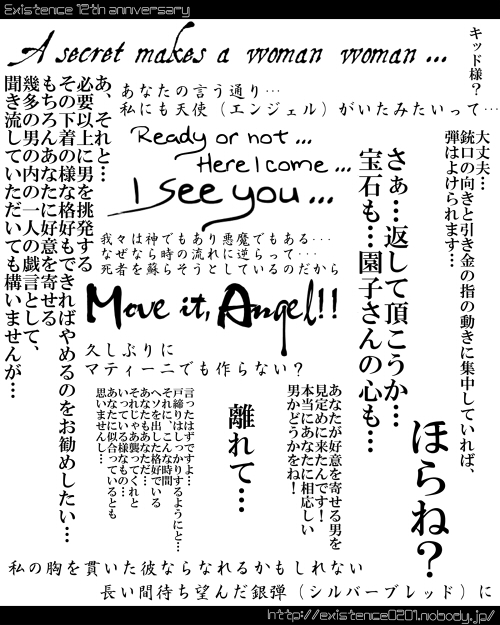 Existence 12th anniversary
A secret makes a woman woman ...
キッド様？
あなたの言う通り…
私にも天使（エンジェル）がいたみたいって…
あ、それと…
必要以上に男を挑発する
その下着の様な格好もできればやめるのをお勧めしたい…
もちろんあなたに好意を寄せる
幾多の男の内の一人の戯言として、
聞き流していただいても構いませんが…
Ready or not ...
Here I come ...
I see you ...
大丈夫…
銃口の向きと引き金の指の動きに集中していれば、
弾はよけられます…
さぁ…返して頂こうか…
宝石も…園子さんの心も…
我々は神でもあり悪魔でもある…
なぜなら時の流れに逆らって…
死者を蘇らそうとしているのだから
Move it, Angel!!
久しぶりに
マティーニでも作らない？
ほらね？
あなたが好意を寄せる男を
見定めに来たんです！
本当にあなたに相応しい
男かどうかをね！
離れて…
言ったはずですよ…
戸締りはしっかりするようにと…
それに、こんな時間
ヘソを出した格好でいる
あなたもあなただ…
それじゃあ襲ってくれと
いっている様なもの…
あなたに似合っているとも
思いませんし…
私の胸を貫いた彼ならなれるかもしれない
長い間待ち望んだ銀弾（シルバーブレッド）に
http://existence0201.nobody.jp/